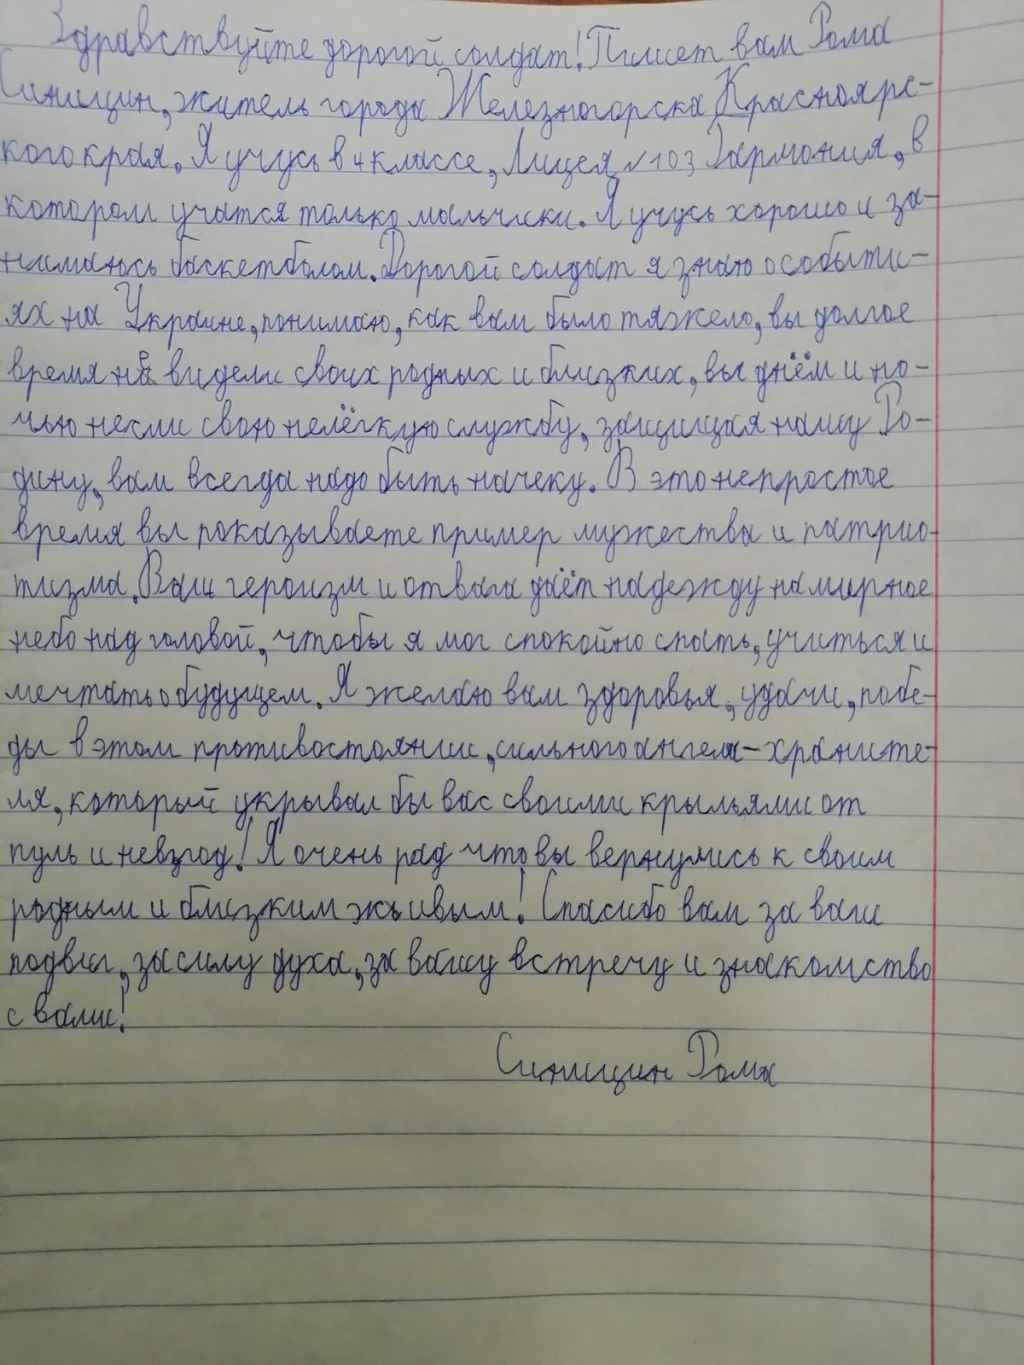 Здравствуйте дорогой солдат! Пишет вам Рома
Синицин, житель города Железногорска Красноярс-
кого края. Я учусь в 4 классе, Лицея №103 Гармония, в
котором учатся только мальчики. Я учусь хорошо и за-
нимаюсь баскетболом. Дорогой солдат я знаю о событи-
ях на Украине, понимаю, как вам было тяжело, вы долгое
время не видели своих родных и близких, вы днём и но-
чью несли свою нелёгкую службу, защищая нашу Ро-
дину, вам всегда надо быть начеку. В это непростое
время вы показываете пример мужества и патрио-
тизма. Ваш героизм и отвага даёт надежду на мирное
небо над головой, чтобы я мог спокойно спать, учиться и
мечтать о будущем. Я желаю вам здоровья, удачи, побе-
ды в этом противостоянии, сильного ангела-храните-
ля, который укрывал бы вас своими крыльями от
пуль и невзгод! Я очень рад что вы вернулись к своим
родным и близким живым! Спасибо вам за ваш
подвиг, за силу духа, за вашу встречу и знакомство
с вами!
Синицин Рома